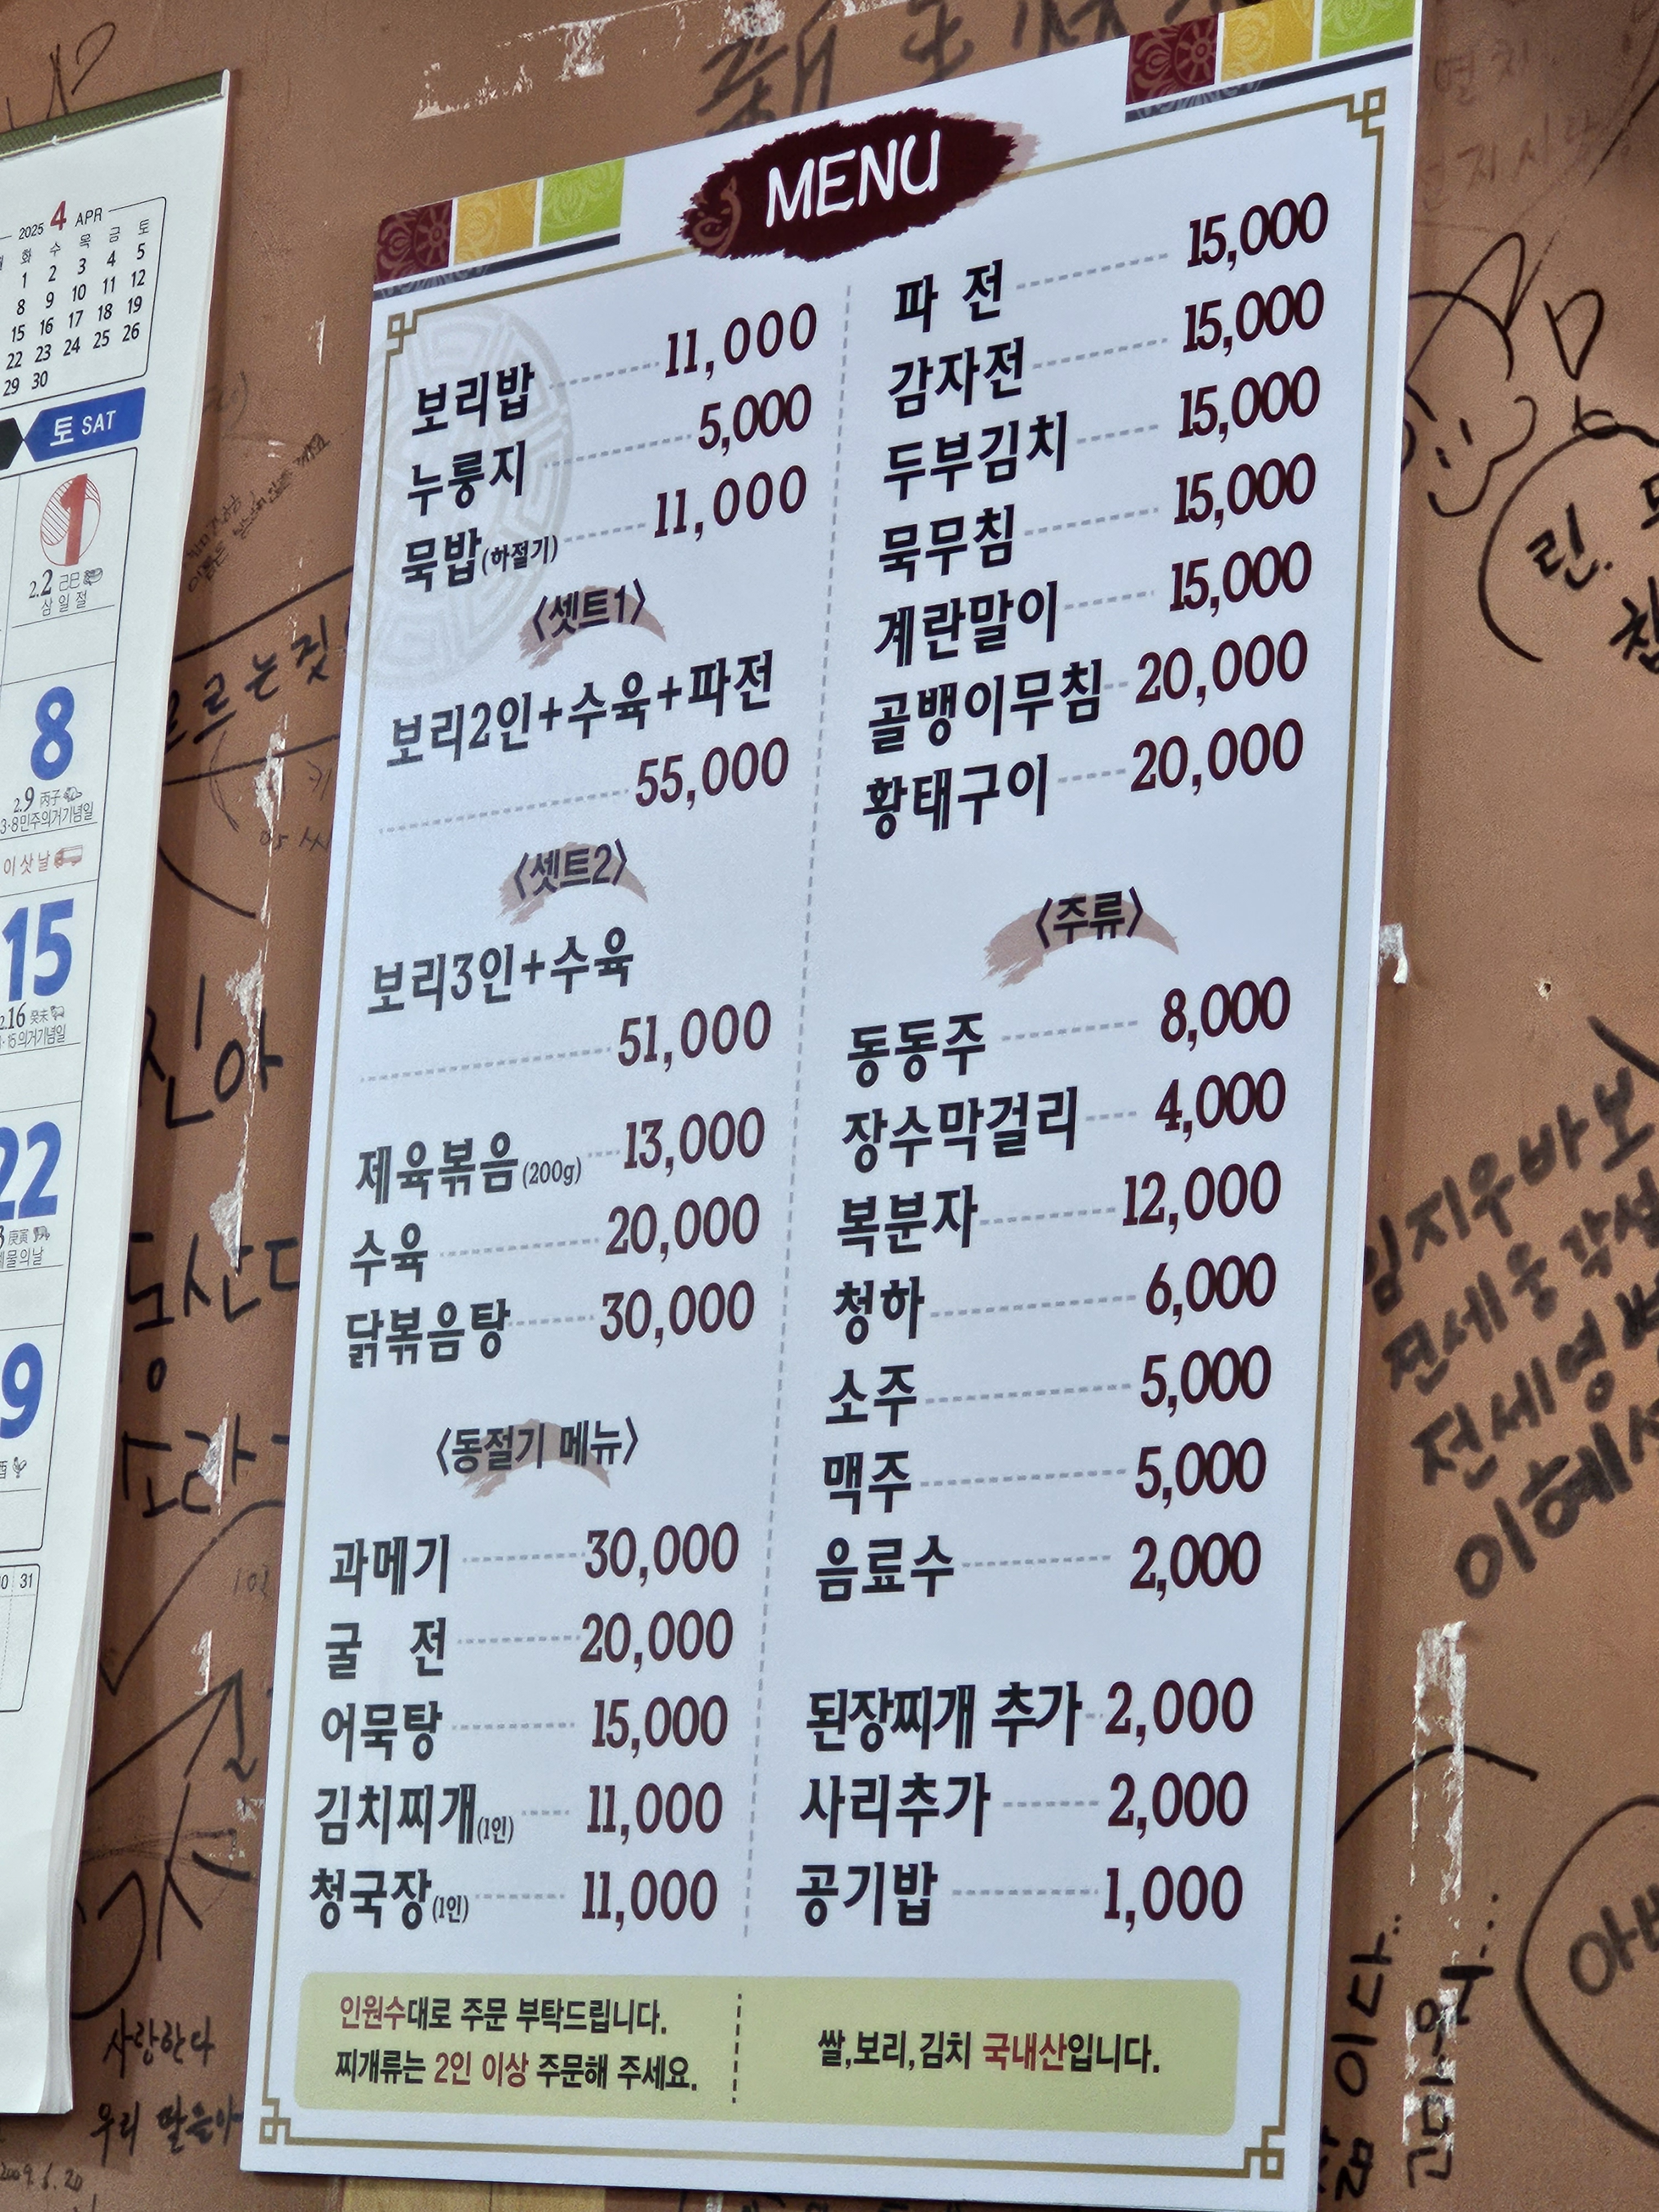 2025 4 APR
화 수 목 금 토
1 2 3 4 5
8 9 10 11 12
15 16 17 18 19
22 23 24 25 26
29 30
토 SAT
1
2.2 己巳
삼일절
8
2.9 丙子
3·8민주의거기념일
이삿날
15
2.16 癸未
15의거기념일
22
庚寅
물의날
9
31
MENU
보리밥 11,000
누룽지 5,000
묵밥(하절기) 11,000
<셋트1>
보리2인+수육+파전
55,000
<셋트2>
보리3인+수육
51,000
제육볶음(200g) 13,000
수육 20,000
닭볶음탕 30,000
<동절기 메뉴>
과메기 30,000
굴 전 20,000
어묵탕 15,000
김치찌개(1인) 11,000
청국장(1인) 11,000
파 전 15,000
감자전 15,000
두부김치 15,000
묵무침 15,000
계란말이 15,000
골뱅이무침 20,000
황태구이 20,000
<주류>
동동주 8,000
장수막걸리 4,000
복분자 12,000
청하 6,000
소주 5,000
맥주 5,000
음료수 2,000
된장찌개 추가 2,000
사리추가 2,000
공기밥 1,000
인원수대로 주문 부탁드립니다.
찌개류는 2인 이상 주문해 주세요.
쌀,보리,김치 국내산입니다.
르는짓
진아
사랑한다
우리
2009.6.20
린.
임지우바보
전세웅
전세영
이혜
이다..
고마워...